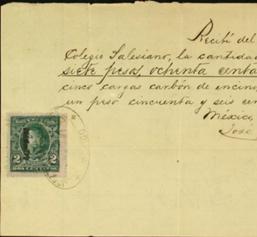 Recibí del
Colegio Salesiano, la cantidad
siete pesos, ochenta centa
cinco cargas carbón de encino,
un peso cincuenta y seis cen
México,
José
2 2